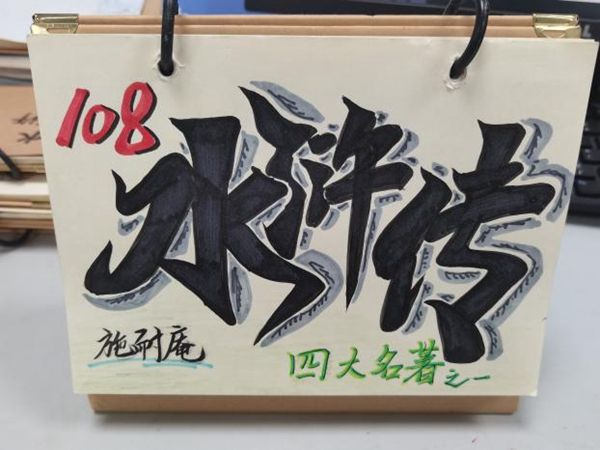 108
水浒传
施耐庵
四大名著之一